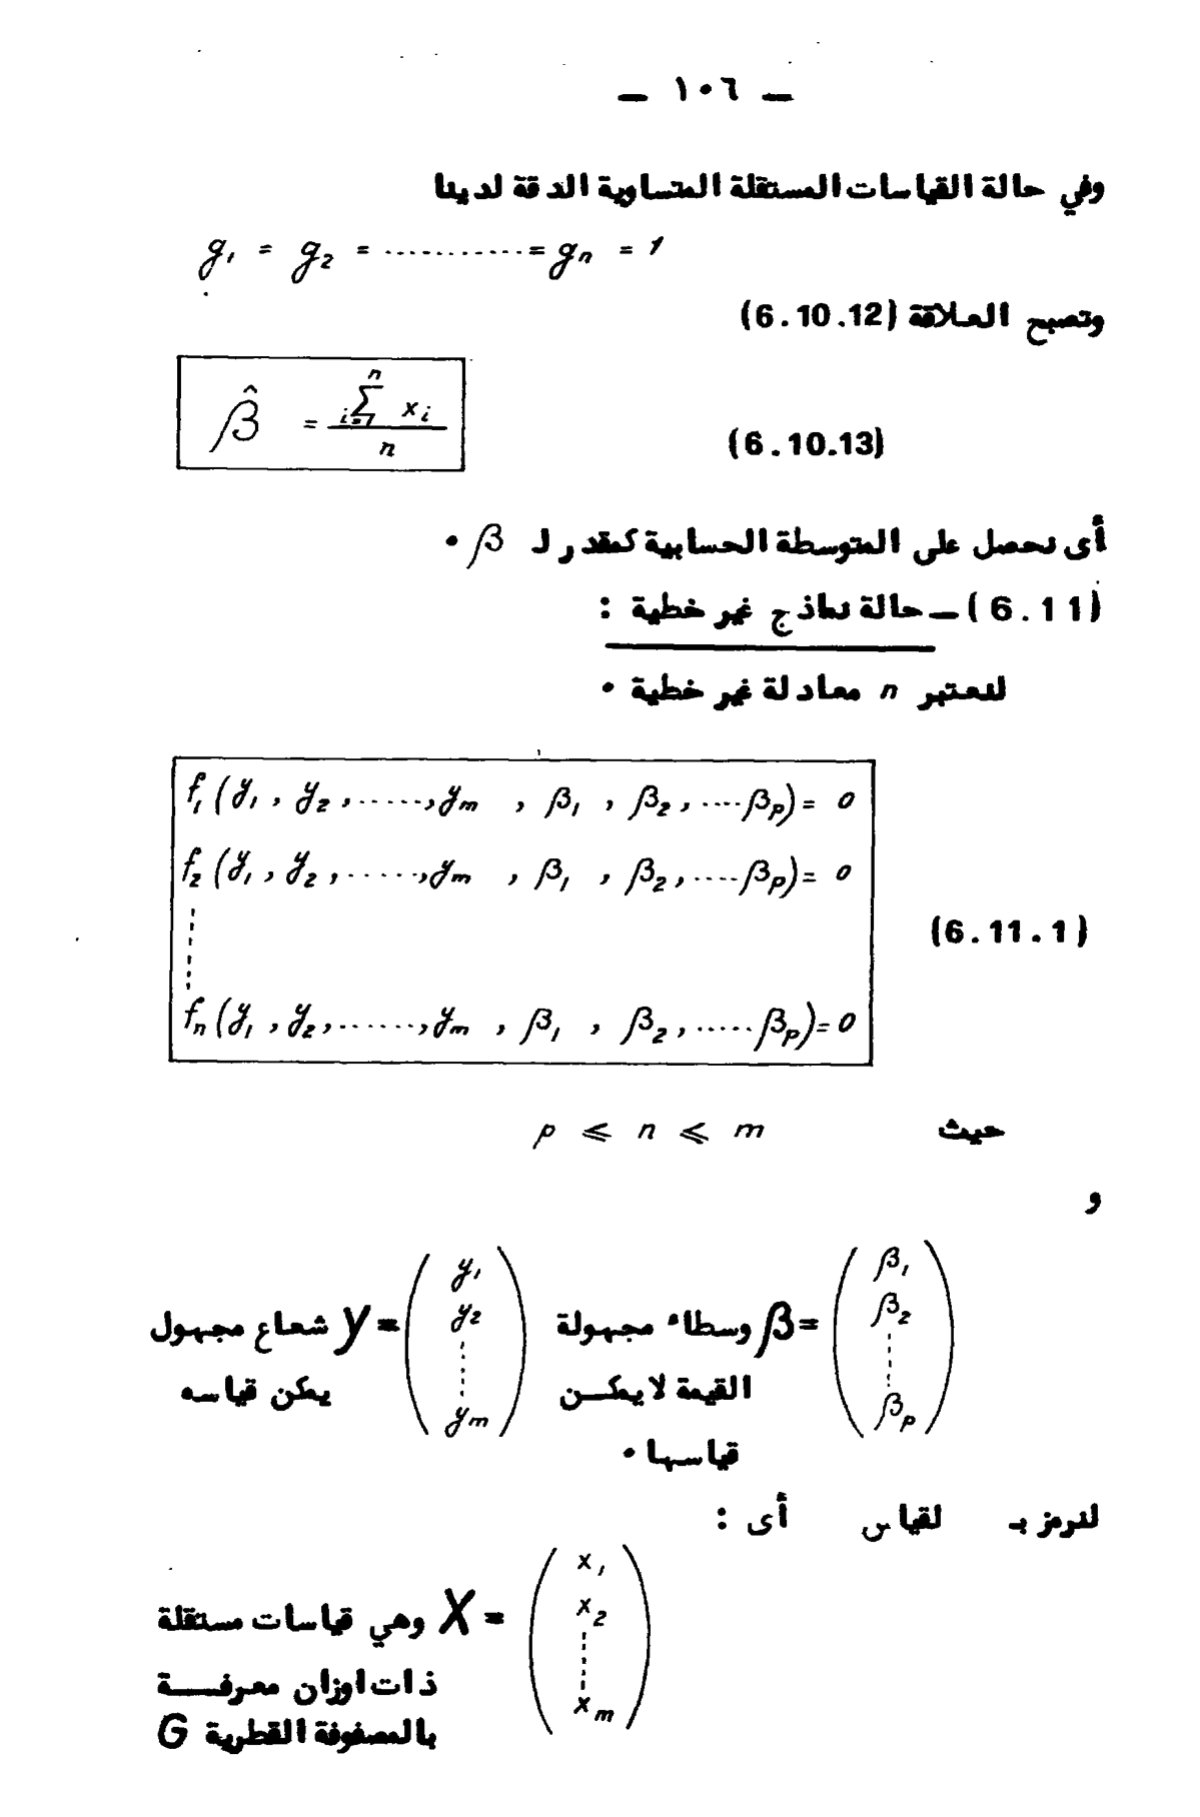 — ١٠٦ —
وفي حالة القياسات المستقلة المتساوية الدقة لدينا
g₁ = g₂ = ............ = gₙ = 1
وتصبح العلاقة (6.10.12)
β̂ = \frac{\sum_{i=1}^{n} x_i}{n} (6.10.13)
أى نحصل على المتوسطة الحسابية كمقدر لـ β .
(6.11) — حالة نماذج غير خطية :
لنعتبر n معادلة غير خطية .
f₁ (y₁ , y₂ , ......, yₘ , β₁ , β₂ , .... βₚ) = 0
f₂ (y₁ , y₂ , ......, yₘ , β₁ , β₂ , .... βₚ) = 0
(6.11.1)
fₙ (y₁ , y₂ , ......., yₘ , β₁ , β₂ , ..... βₚ) = 0
حيث p ⩽ n ⩽ m
و
β = (β₁ β₂ ⋮ βₚ) وسطاء مجهولة
القيمة لا يمكن
قياسها .
y = (y₁ y₂ ⋮ yₘ) شعاع مجهول
يمكن قياسه
لنرمز بـ لقياس أى :
X = (x₁ x₂ ⋮ xₘ) وهي قياسات مستقلة
ذات اوزان معرفة
بالمصفوفة القطرية G